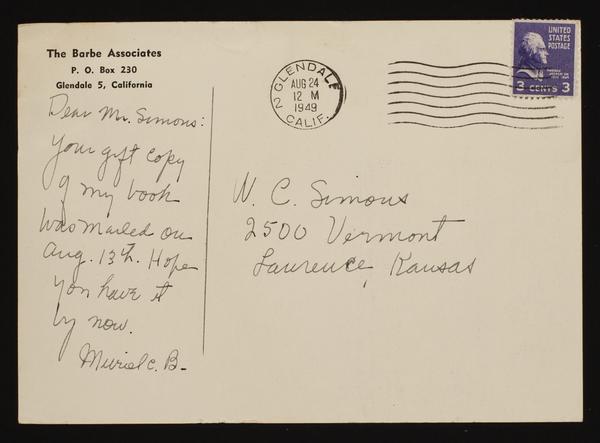 The Barbe Associates
P. O. Box 230
Glendale 5, California
Dear Mr. Simons:
Your gift copy
of my book
was mailed on
Aug. 13th. Hope
you have it
by now.
Muriel C. B-
GLENDALE
2
AUG 24
12 M
1949
CALIF.
UNITED
STATES
POSTAGE
3 CENTS 3
W. C. Simons
2500 Vermont
Lawrence, Kansas